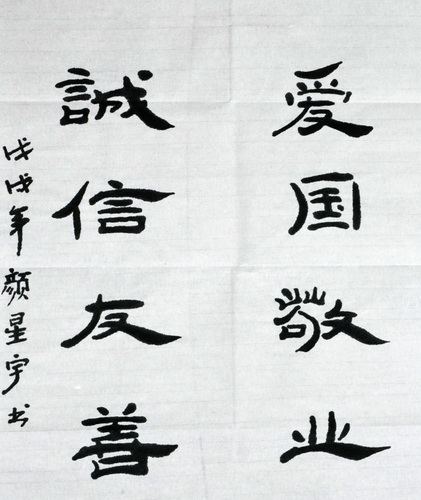 爱国敬业
誠信友善
戊戌年顏星宇书